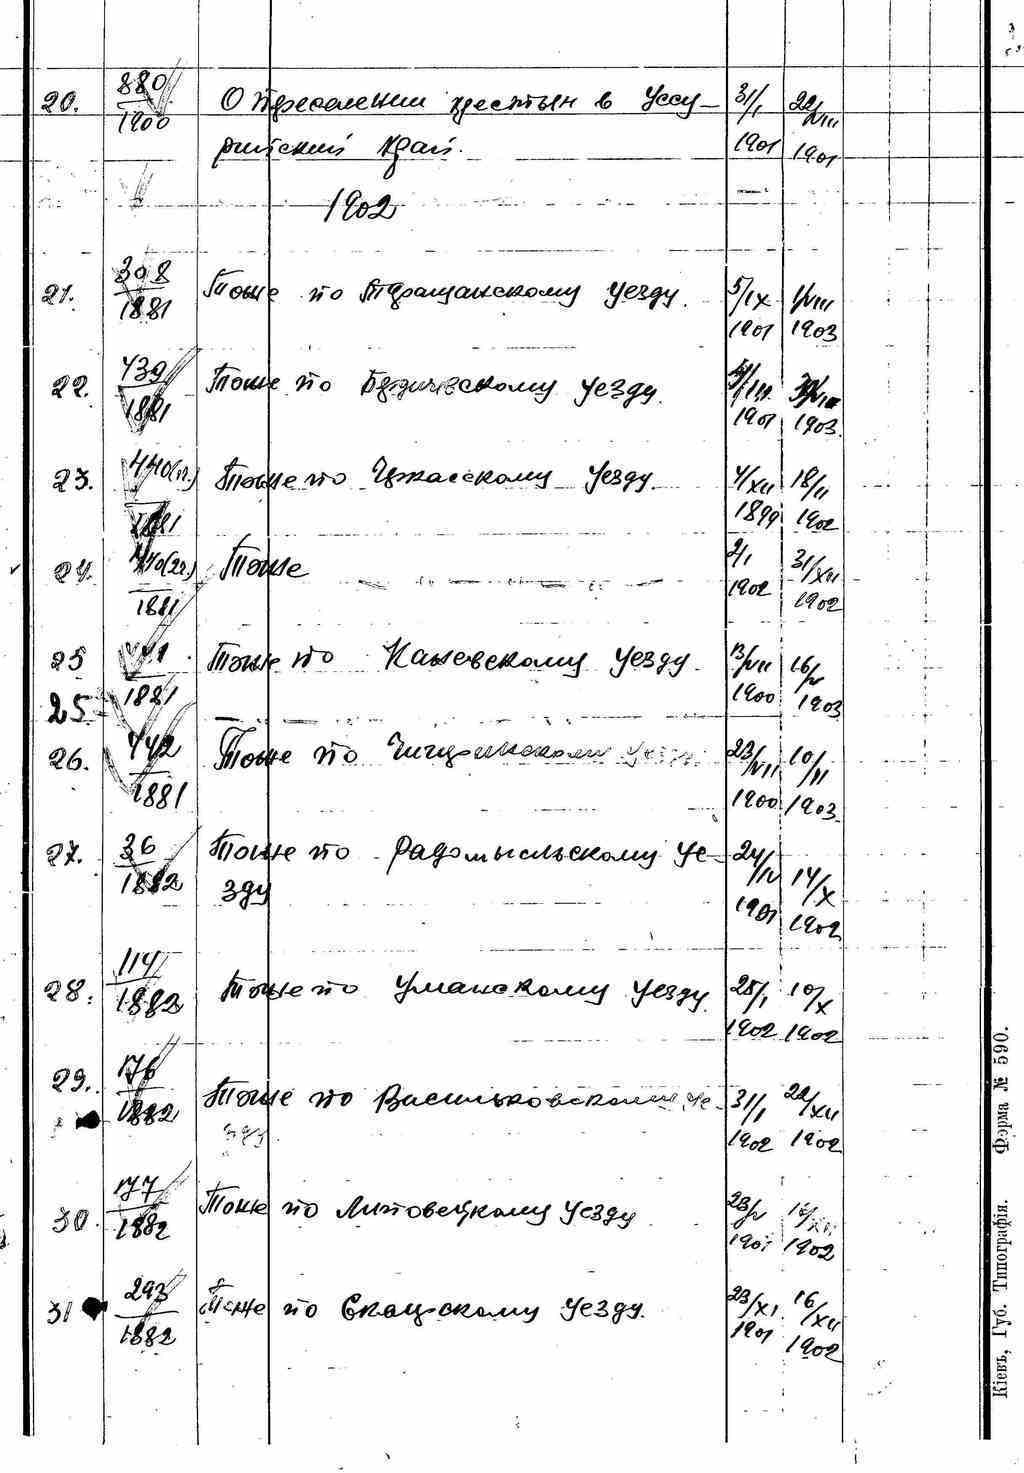 20. 880/1900 О переселении крестьян в Уссу- 31/I 1901 22/VIII 1901
рийский край.
1902
21. 308/1881 Тоже по Таращанскому уезду. 5/IX 1901 1/VIII 1903
22. 439/1881 Тоже по Бердичевскому уезду. 1901 1903
23. 440(1ч.)/1881 Тоже по Черкасскому уезду. 4/XII 1899 18/II 1902
24. 440(2ч.)/1881 Тоже 2/I 1902 31/XII 1902
25 441/1881 Тоже по Каневскому уезду. 13/VII 1900 16/V 1903
25
26. 442/1881 Тоже по Чигиринскому уезду 23/VII 1900 10/II 1903
27. 36/1882 Тоже по Радомысльскому уе- 24/IV 1901 14/X 1902
зду
28. 114/1882 Тоже по Уманскому уезду. 25/I 1902 10/X 1902
29. 176/1882 Тоже по Васильковскому уе- 31/I 1902 22/XII 1902
зду.
30. 177/1882 Тоже по Липовецкому уезду 23/V 1901 16/XII 1902
31 293/1882 Тоже по Сквирскому уезду. 23/XI 1901 16/XII 1902
Кіевъ, Губ. Типографія. Форма № 590.